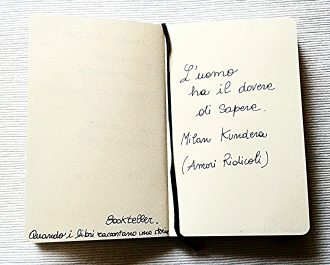 Bookteller.
Quando i libri raccontano una storia
L'uomo
ha il dovere
di sapere.
Milan Kundera
(Amori Ridicoli)